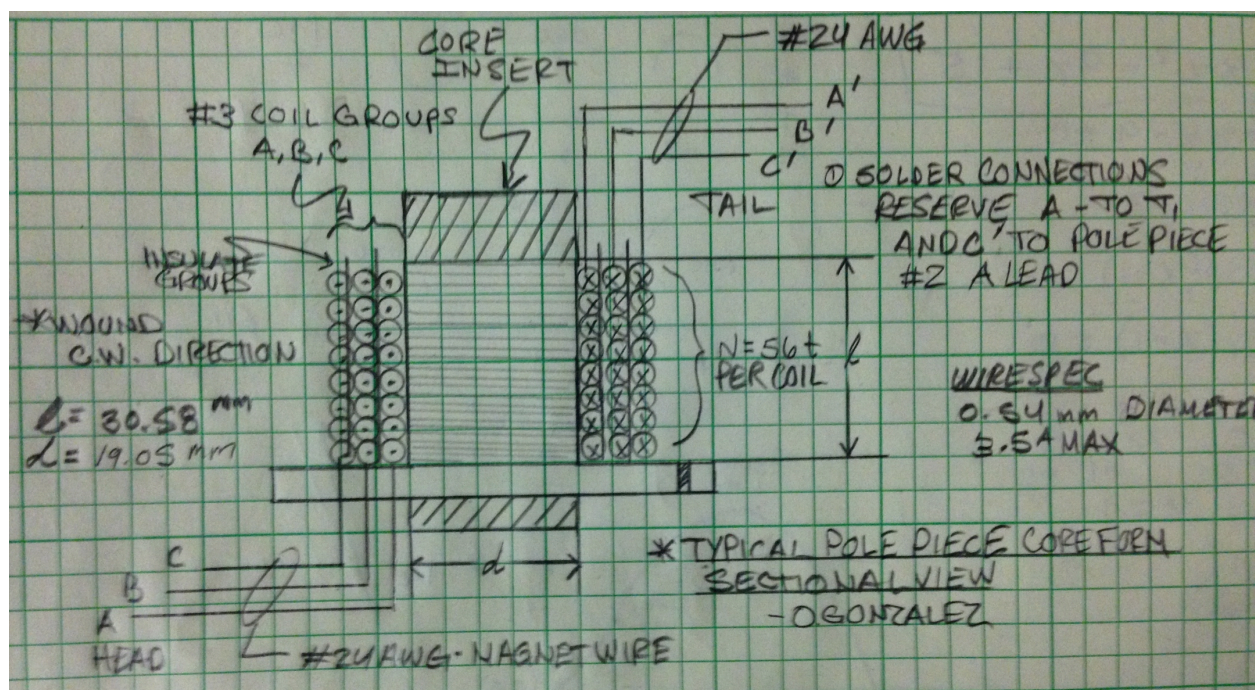 CORE
INSERT
#24 AWG
#3 COIL GROUPS
A, B, C
A'
B'
C'
TAIL
① SOLDER CONNECTIONS
RESERVE A - TO T1
AND C' TO POLE PIECE
#2 A LEAD
INSULATE
GROUPS
*WOUND
C.W. DIRECTION
l = 30.58 mm
d = 19.05 mm
N = 56 t
PER COIL
l
WIRE SPEC
0.54 mm DIAMETE
3.5A MAX
d
C
B
A
HEAD
#24 AWG - MAGNET WIRE
* TYPICAL POLE PIECE CORE FORM
SECTIONAL VIEW
- O GONZALEZ